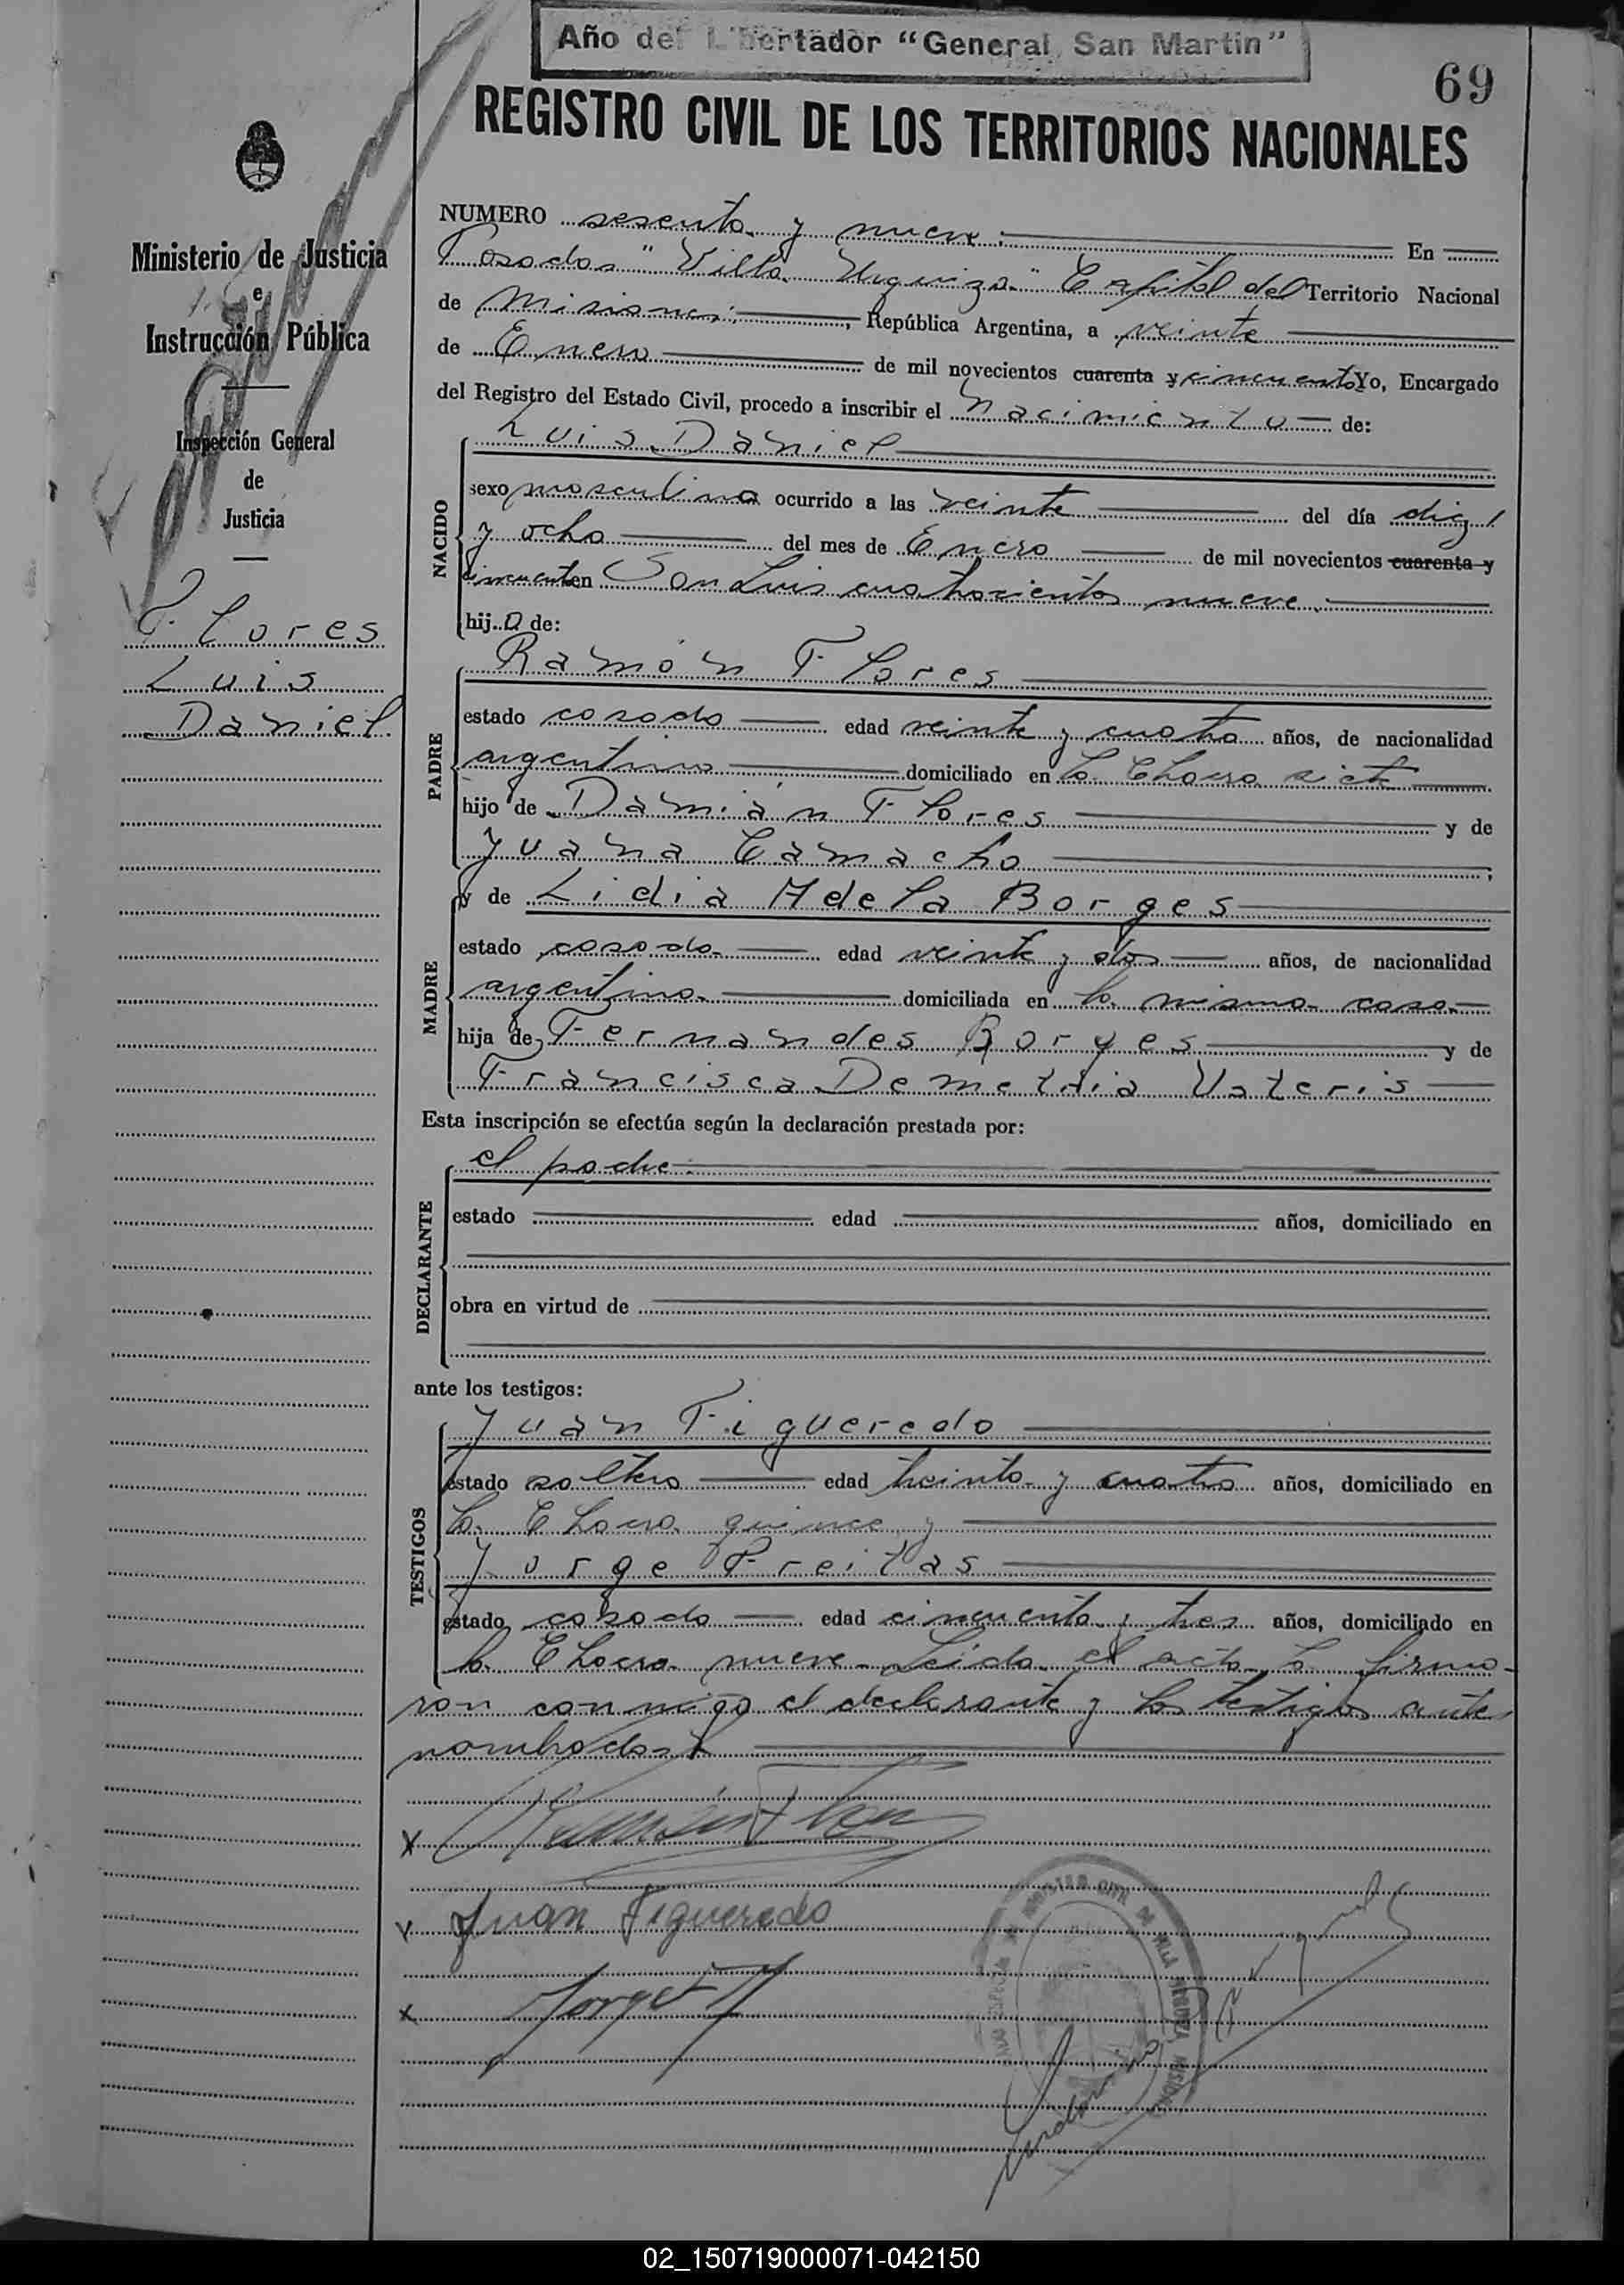 Año del Libertador “General San Martín”
69
REGISTRO CIVIL DE LOS TERRITORIOS NACIONALES
Ministerio de Justicia
e
Instrucción Pública
Inspección General
de
Justicia
Flores
Luis
Daniel
NUMERO sesenta y nueve. En
Posadas "Villa Urquiza" Capital del Territorio Nacional
de Misiones, República Argentina, a veinte
de Enero de mil novecientos cuarenta y cincuenta Yo, Encargado
del Registro del Estado Civil, procedo a inscribir el nacimiento de:
NACIDO
Luis Daniel
sexo masculino ocurrido a las veinte del día diez
y ocho del mes de Enero de mil novecientos cuarenta y
cincuenta en San Luis cuatrocientos nueve.
hijo de:
PADRE
Ramón Flores
estado casado edad veinte y cuatro años, de nacionalidad
argentino domiciliado en la Chacra siete
hijo de Damián Flores y de
Juana Camacho
MADRE
y de Lidia Adela Borges
estado casada edad veinte y dos años, de nacionalidad
argentina domiciliada en la misma casa
hija de Fernandes Borges y de
Francisca Demetria
Esta inscripción se efectúa según la declaración prestada por:
DECLARANTE
el padre.
estado edad años, domiciliado en
obra en virtud de
ante los testigos:
TESTIGOS
Juan Figueredo
estado soltero edad treinta y cuatro años, domiciliado en
la Chacra quince y
Jorge Freitas
estado casado edad cincuenta y tres años, domiciliado en
la Chacra nueve. Leída el acta la firma-
ron conmigo el declarante y los testigos ante
nombrados.
x Ramón Flores
x Juan Figueredo
x Jorge
02_150719000071-042150